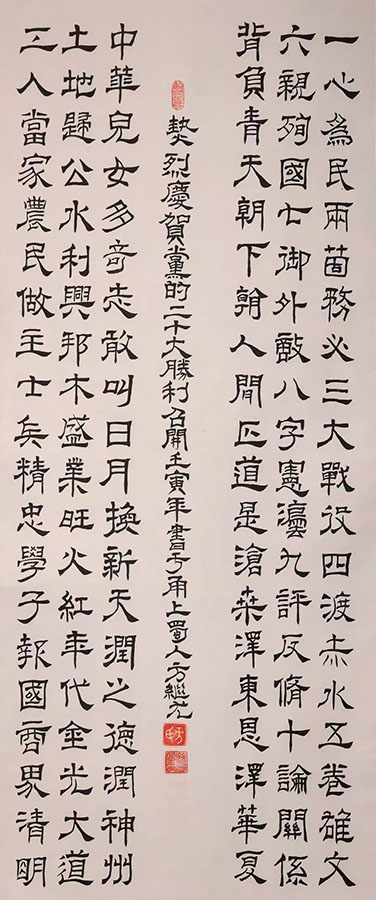 一心為民兩箇務必三大戰役四渡赤水五卷雄文
六親殉國七御外敵八字憲灋九評反脩十論關係
背負青天朝下翰人間正道是滄桑澤東恩澤華夏
熱烈慶賀黨的二十大勝利召開壬寅年書于甬上蜀人方繼
中華兒女多奇志敢叫日月換新天潤之德潤神州
土地歸公水利興邦木盛業旺火紅年代金光大道
工人當家農民做主士兵精忠學子報國商界清明